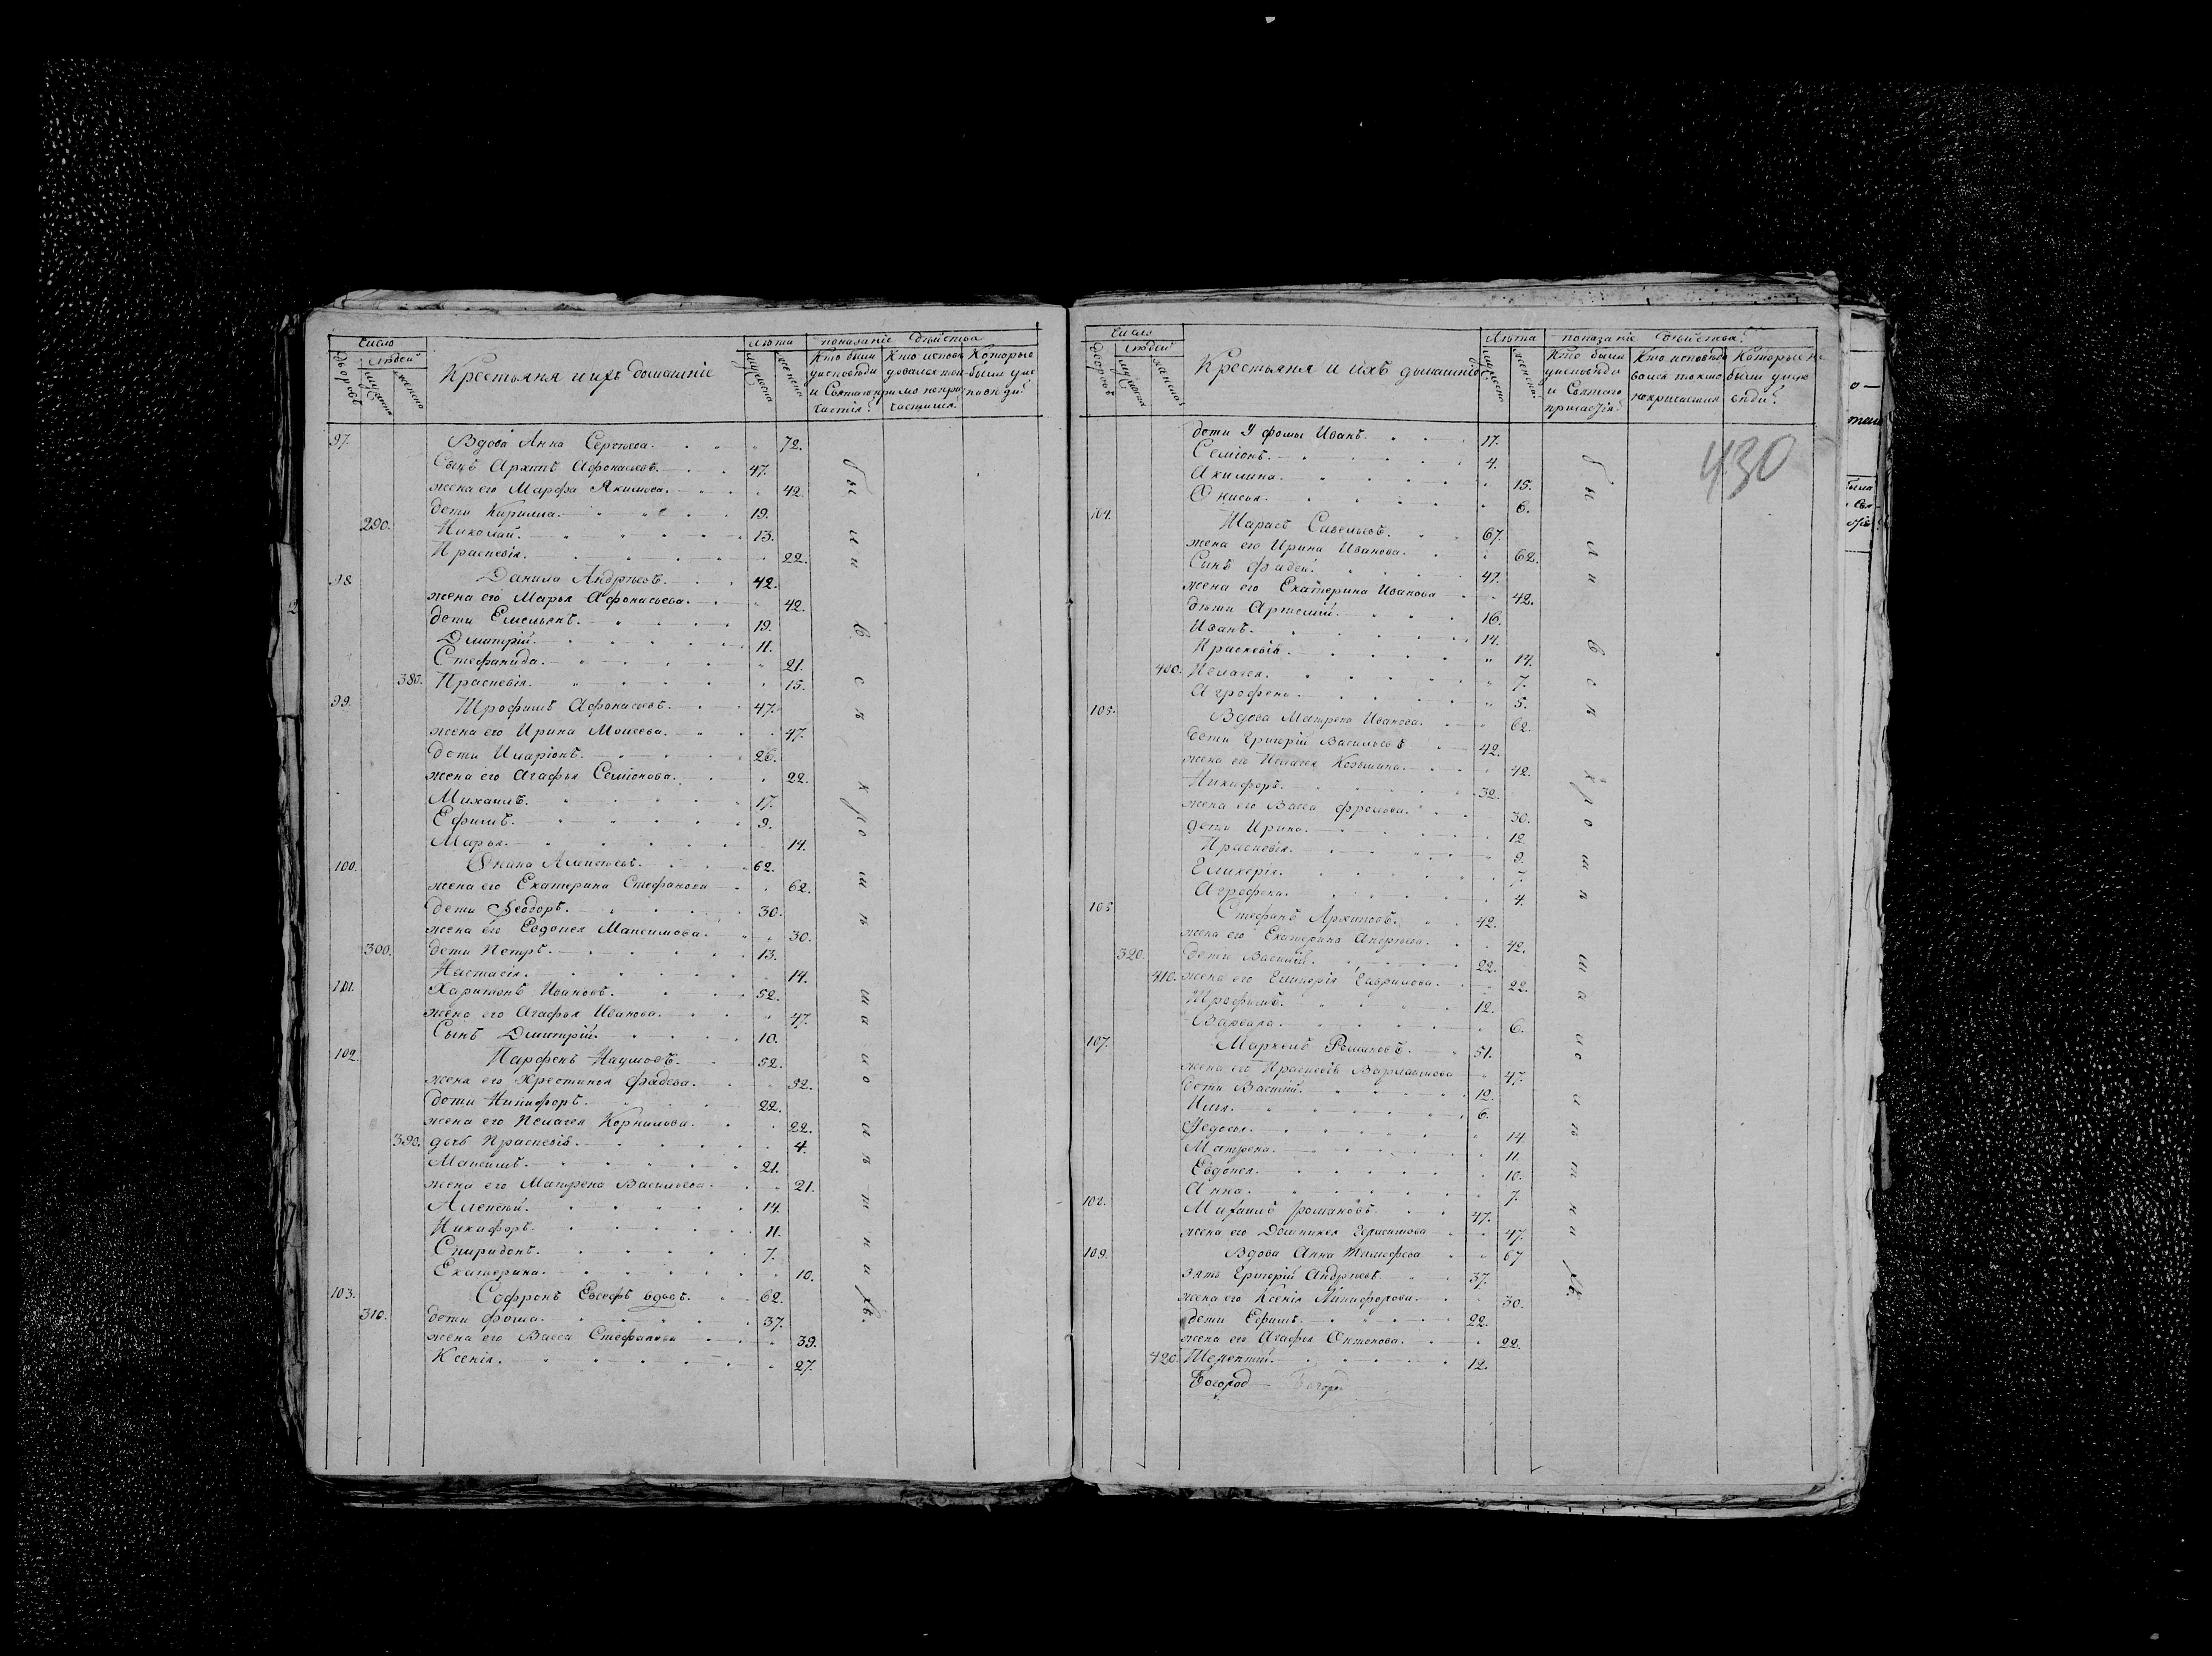 Число
Людей
Дворовъ
мужеска
женска
Крестьяня и ихъ домашніе
Лѣта
мужеска
женска
показаніе дѣйства
Кто были у исповѣди и Святаго причастія
Кто исповѣдовался токмо не причастился
Которые не были у исповѣди
97. Вдова Анна Сергѣева. 72.
Сынъ Архипъ Афонасьевъ. 47.
жена его Марфа Якимова. 42.
дети Кирилла. 19.
290. Николай. 13.
Прасковія. 22.
98 Данила Андрѣевъ. 42.
жена его Марья Афонасьева. 42.
дети Емельянъ. 19.
Дмитрій. 11.
Стефанида. 21.
380. Прасковія. 15.
99. Трофимъ Афонасьевъ. 47.
жена его Ирина Моисева. 47.
дети Иларіонъ. 26.
жена его Агафья Семіонова. 22.
Михаилъ. 17.
Ефимъ. 9.
Марья. 14.
100. 62.
жена его Екатерина Стефанова 62.
дети Феодоръ. 30.
жена его Евдокея Максимова. 30.
300. дети Петръ. 13.
Настасія. 14.
101. Харитонъ Ивановъ. 52.
жена его Агафья Иванова. 47.
Сынъ Дмитрій. 10.
102. Парфенъ Наумовъ. 52.
жена его Христинья Фадеева. 52.
дети Никифоръ. 22.
жена его Пелагея Корнилова. 22.
390. дочь Прасковія. 4.
Максимъ. 21.
жена его Матрена Васильева. 21.
Алексѣй. 14.
Никифоръ. 11.
Спиридонъ. 7.
Екатерина. 10.
103. Софронъ вдовъ. 62.
310. дети Фома. 37.
жена его Васса Стефанова 39.
Ксенія. 27.
Число
Людей
Дворовъ
мужеска
женска
Крестьяня и ихъ домашніе
Лѣта
мужеска
женска
показаніе дѣйства
Кто были у исповѣди и Святаго причастія
Кто исповѣдовался токмо не причастился
Которые не были у исповѣди
430
дети У Фомы Иванъ. 17.
Семіонъ. 4.
Акилина. 15.
Онисья. 6.
104. Тарасъ Савельевъ. 67.
жена его Ирина Иванова. 62.
Сынъ Фадей. 47.
жена его Екатерина Иванова 42.
дѣти Артемій. 16.
Иванъ. 14.
Прасковія. 14.
400. Пелагея. 7.
Агрофена. 5.
105. Вдова Матрена Иванова. 62.
дети Григорій Васильевъ 42.
жена его Пелагея Козьмина. 42.
Никифоръ. 32.
жена его Васса Фролова. 30.
дети Ирина. 12
Прасковія. 9.
Гликерія. 7.
Агрофена. 4.
Стефанъ Архиповъ. 42.
жена его Екатерина Андрѣева. 42.
320. дети Василій. 22.
410. жена его Гликерія Гаврилова. 22.
Трофимъ. 12.
Варвара. 6.
107. 51.
жена его Прасковія Варлаамова 47.
дети Василій. 12.
Илья. 6.
Федосья. 14.
Матрена. 11.
Евдокея. 10.
Анна. 7.
Михаилъ Романовъ. 47.
жена его Домникея 47.
109. Вдова Анна Тимофеева 67
зять Григорій Андрѣевъ 37.
жена его Ксенія Никифорова. 30.
дети Ефимъ. 22.
жена его Агафья Антонова. 22.
420. Терентій. 12.
Богород